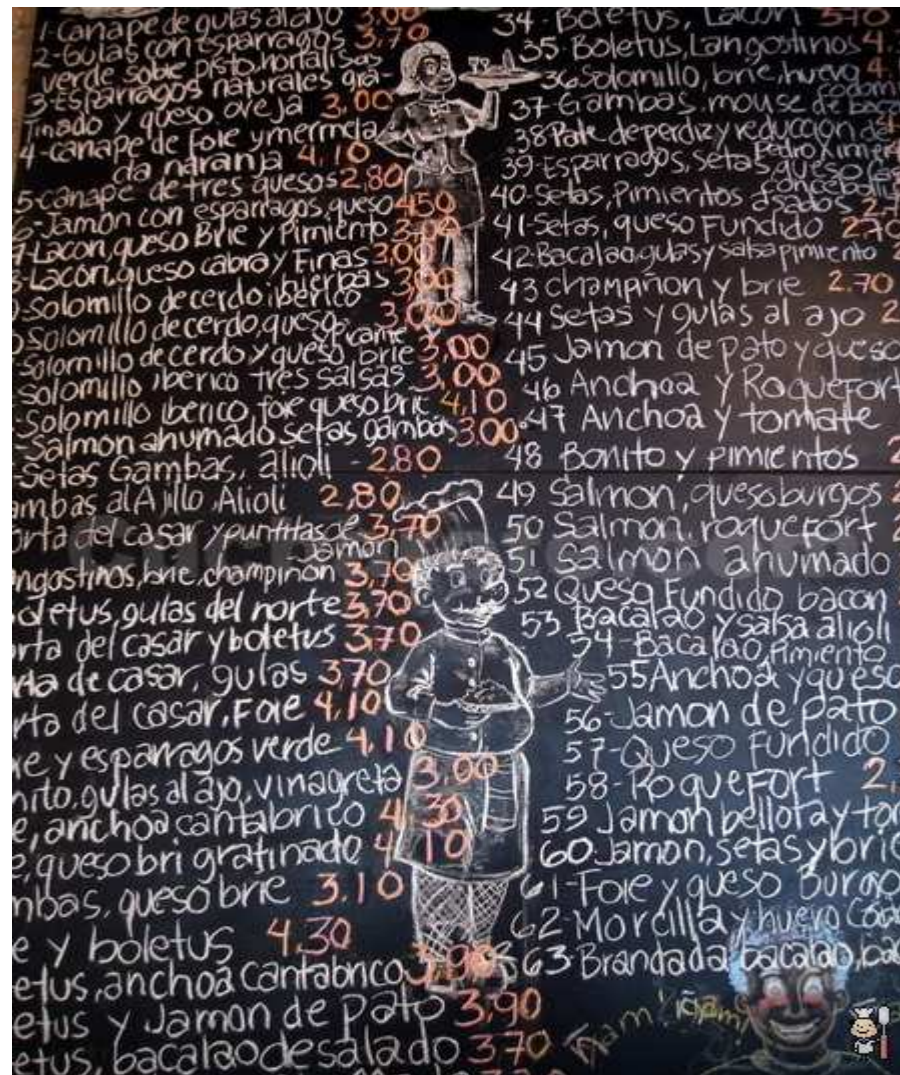 1-Canape de gulas al ajo 3.00
2-Gulas con esparragos 3,70
verde sobre pisto, hortalisas
3-Esparragos naturales gra-
tinado y queso oveja 3.00
4-canape de Foie y mermela
da naranja 4.10
5-canape de tres quesos 2,80
6-Jamon con esparragos, queso 450
7-Lacon, queso Brie y Pimiento
8-Lacon, queso cabra y Finas 3,00
hierbas
Solomillo de cerdo iberico 3,00
Solomillo de cerdo, queso 3,00
Solomillo de cerdo y queso brie 3,00
Solomillo iberico tres salsas 3,00
Solomillo iberico, foie queso brie 4,10
-Salmon ahumado setas gambas 3.00
-Setas Gambas, alioli - 2,80
ambas al Ajillo Alioli 2,80
orta del casar y puntitas de 3,70
Jamon
ngostinos, brie, champiñon 3,70
oletus, gulas del norte 3,70
orta del casar y boletus 3,70
rta de casar, gulas 370
rta del casar, Foie 4,10
ie y esparragos verde 4,10
nito, gulas al ajo, vinagreta 3,00
e, anchoa cantabrico 4,30
e, queso bri gratinado 4,10
mbas, queso brie 3.10
e y boletus 4.30
etus, anchoa cantabrico 3,90
etus y Jamon de pato 3,90
etus, bacalao desalado 370
34-Boletus, Lacon 370
35-Boletus, Langostinos 4.
36 Solomillo, brie, huevo 4.
codorn
37-Gambas, mouse de baca
38 Pate de perdiz y reduccion de
Pedro Ximen
39-Esparragos, setas, queso
40-Setas, Pimientos asados 2,
41-Setas, queso Fundido 2.70
42-Bacalao, gulas y salsa pimiento 2
43 champiñon y brie 2.70
44 Setas y gulas al ajo 2
45 Jamon de pato y queso
46 Anchoa y Roquefort
47 Anchoa y tomate
48 Bonito y pimientos 2
49 Salmon, queso burgos 2
50 Salmon, roquefort 2
51 Salmon ahumado
52 Queso Fundido bacon
53 Bacalao y salsa alioli
54-Bacalao, Pimiento
55 Anchoa y queso
56-Jamon de pato
57-Queso Fundido
58-Roquefort 2,
59 Jamon bellota y tom
60 Jamon, setas y brie
61-Foie y queso Burgo
62-Morcilla y huevo Cod
63-Brandada bacalao, bac
Ñam Ñam